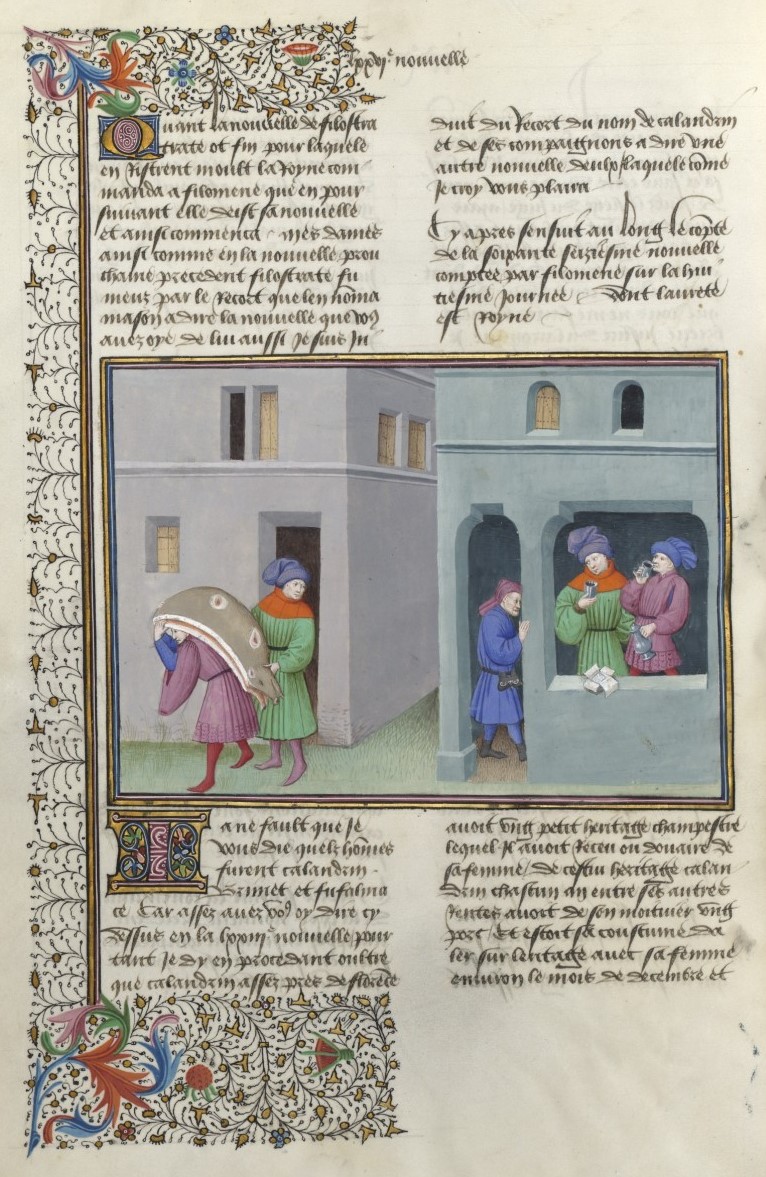 lxxvi^e nouuelle
Quant la nouuelle de filostra
trate ot fin pour laquele
en Risirent moult la Royne com
manda a filomene que en pour
suiuant elle deist sa nouuelle
et ainsi commenca mes dames
ainsi comme en la nouuelle prou
chaine precedent filostrate fu
meuz par le Recort que len noma
mason a dire la nouuelle que vo9
auez oye de lui aussi Je suis In
duit du Recort du nom de calandrin
et de ses compaignons a dire vne
autre nouuelle deulx laquele come
Je croy vous plaira
Cy apres sensuit au long le compte
de la soixante seiziesme nouuelle
comptee par filomene sur la hui
tiesme Journee dont laurete
est Royne
Ia ne fault que Je
vous die quelz homes
furent calandrin
Brunet et bufalma
ce Car assez auez vo9 oy dire cy
dessus en la lxxiii^e nouuelle pour
tant Je dy en procedant oultre
que calandrin assez pres de florece
auoit vng petit heritage champestre
lequel Il auoit Receu ou douaire de
sa femme / de cestui heritage calan
drin chascun an entre ses autres
Rentes auoit de son moituier vng
porc / Et estoit sa coustume da
ler sur leritage auec sa femme
enuiron le mois de decembre et